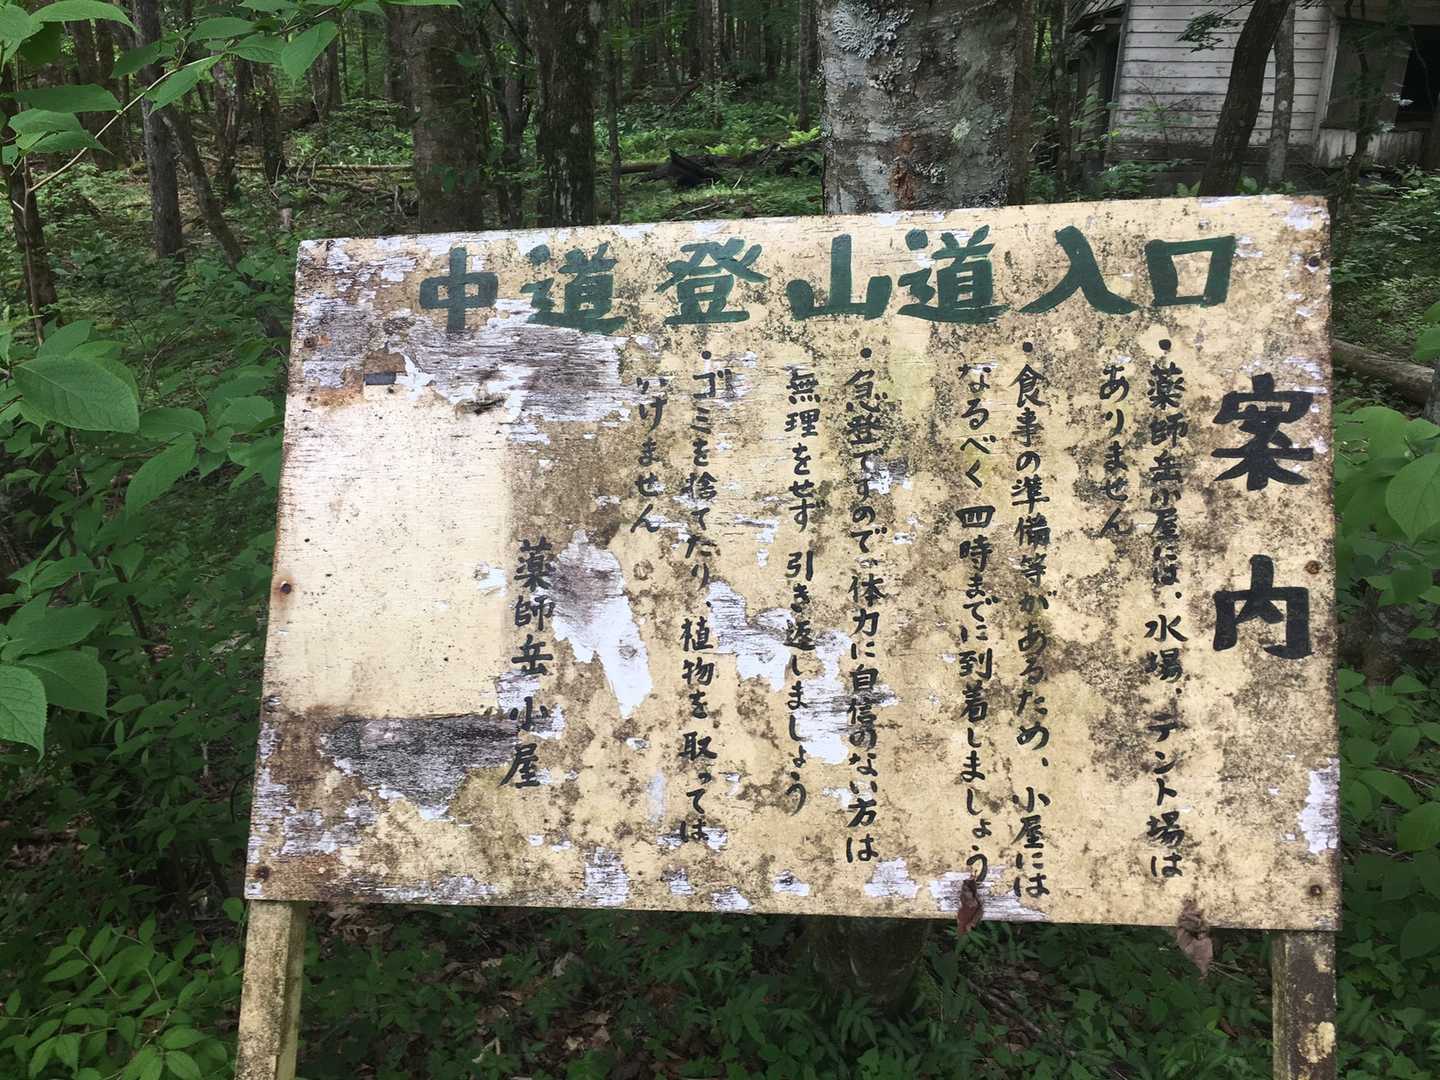 中道登山道入口
案内
・薬師岳小屋には、水場、テント場は
ありません
・食事の準備等があるため、小屋には
なるべく四時までに到着しましょう
・急登ですので、体力に自信のない方は
無理をせず引き返しましょう
・ゴミを捨てたり、植物を取っては
いけません
薬師岳小屋